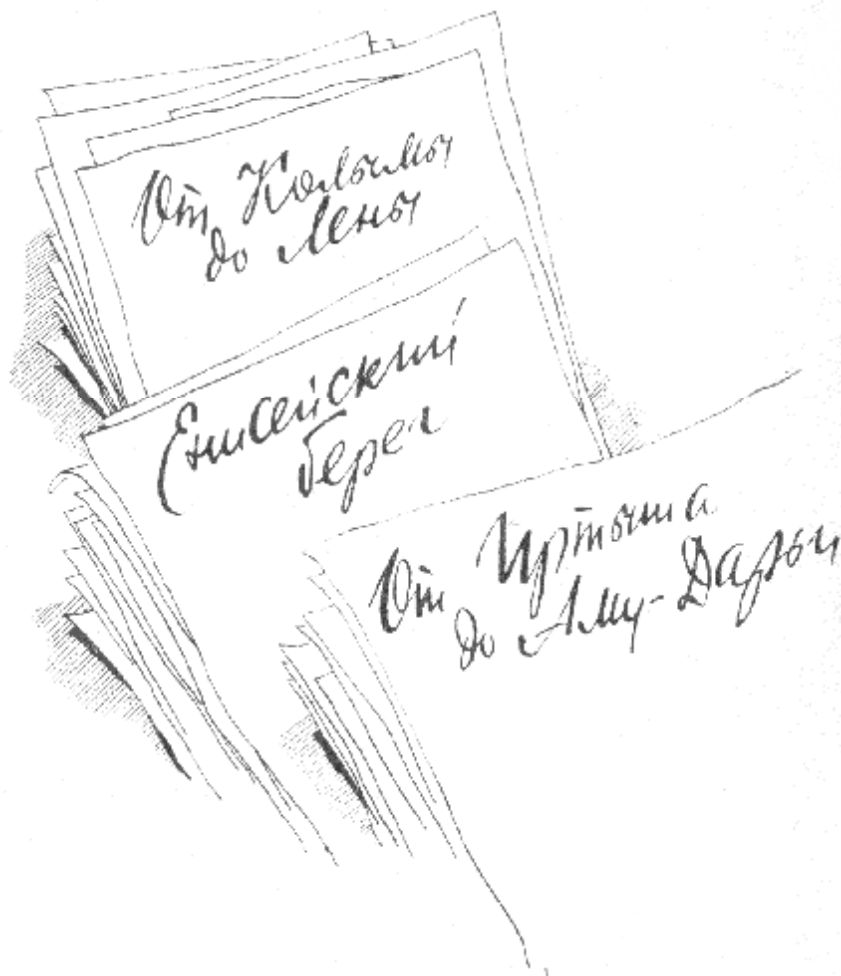 От Колымы
до Лены
Енисейский
берег
От Иртыша
до Аму-Дарьи